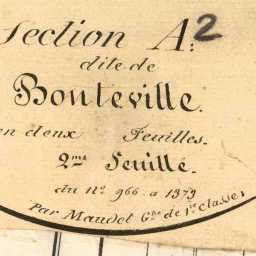 Section A:2
dite de
Bonteville.
en deux Feuilles.
2me Feuille.
du No. 966 a 1379
Par Maudet Gtre de 1re Classe,